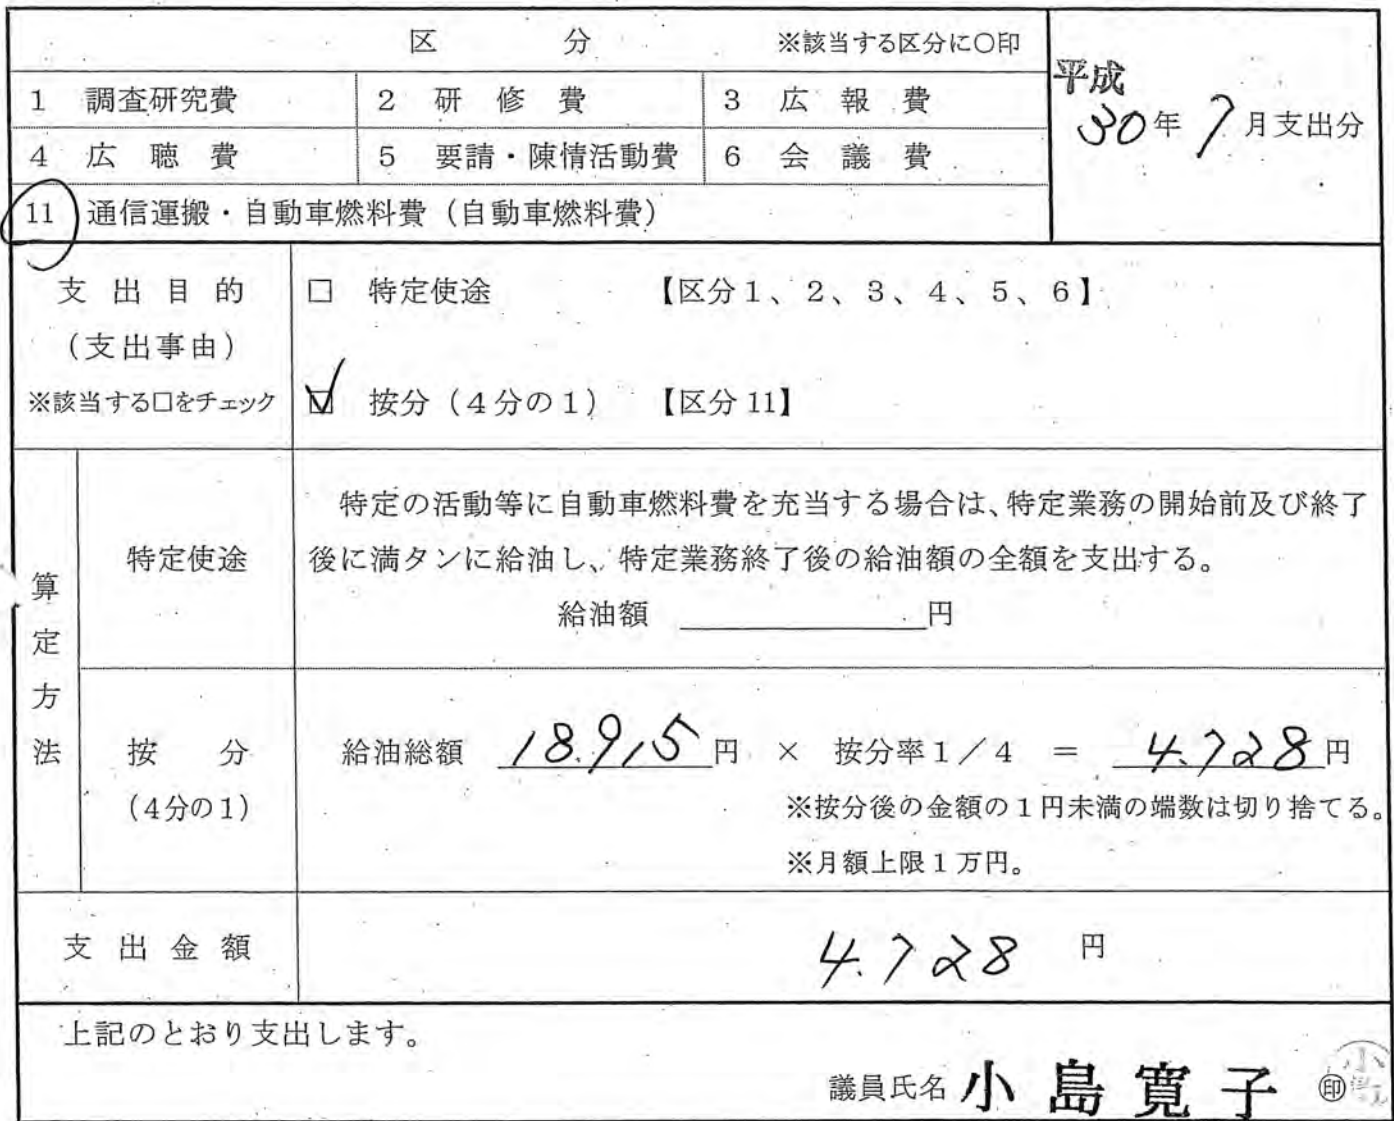 区　　　分　　※該当する区分に○印
平成
30年 7月支出分
1　調査研究費　2　研　修　費　3　広　報　費
4　広　聴　費　5　要請・陳情活動費　6　会　議　費
11　通信運搬・自動車燃料費（自動車燃料費）
支 出 目 的
（支出事由）
※該当する□をチェック
□　特定使途　【区分１、２、３、４、５、６】
☑　按分（４分の１）　【区分11】
算定方法
特定使途
特定の活動等に自動車燃料費を充当する場合は、特定業務の開始前及び終了
後に満タンに給油し、特定業務終了後の給油額の全額を支出する。
給油額　＿＿＿＿＿円
按　　分
（4分の1）
給油総額　18.915円　×　按分率１／４　＝　4.728円
※按分後の金額の１円未満の端数は切り捨てる。
※月額上限１万円。
支 出 金 額　4.728　円
上記のとおり支出します。
議員氏名 小 島 寛 子 ㊞